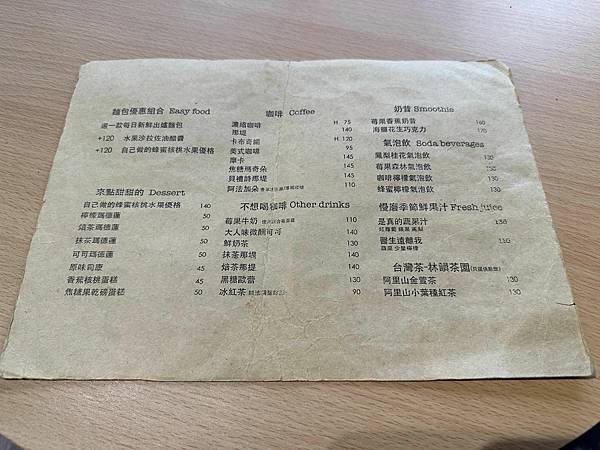 麵包優惠組合 Easy food
選一款每日新鮮出爐麵包
+120 水果沙拉佐油醋醬
+120 自己做的蜂蜜核桃水果優格
來點甜甜的 Dessert
自己做的蜂蜜核桃水果優格 140
檸檬瑪德蓮 50
焙茶瑪德蓮 50
抹茶瑪德蓮 50
可可瑪德蓮 50
原味司康 45
香蕉核桃蛋糕 45
焦糖果乾磅蛋糕 50
咖啡 Coffee
濃縮咖啡 H 75
那堤 140
卡布奇諾 H
美式咖啡 95
摩卡 145
焦糖瑪奇朵 145
貝禮詩那堤 150
阿法加朵 110
不想喝咖啡 Other drinks
莓果牛奶 110
大人味微醺可可 140
鮮奶茶 130
抹茶那堤 140
焙茶那堤 140
黑糖歐蕾 130
冰紅茶 90
奶昔 Smoothie
莓果香蕉奶昔 160
海鹽花生巧克力 170
氣泡飲 Soda beverages
鳳梨桂花氣泡飲 130
莓果森林氣泡飲 130
咖啡檸檬氣泡飲 130
蜂蜜檸檬氣泡飲 130
慢磨季節鮮果汁 Fresh juice
是真的蔬果汁 130
紅蘿蔔 蘋果 鳳梨
醫生遠離我 130
蘋果 少量檸檬
台灣茶-林韻茶園
阿里山金萱茶 130
阿里山小葉種紅茶 130